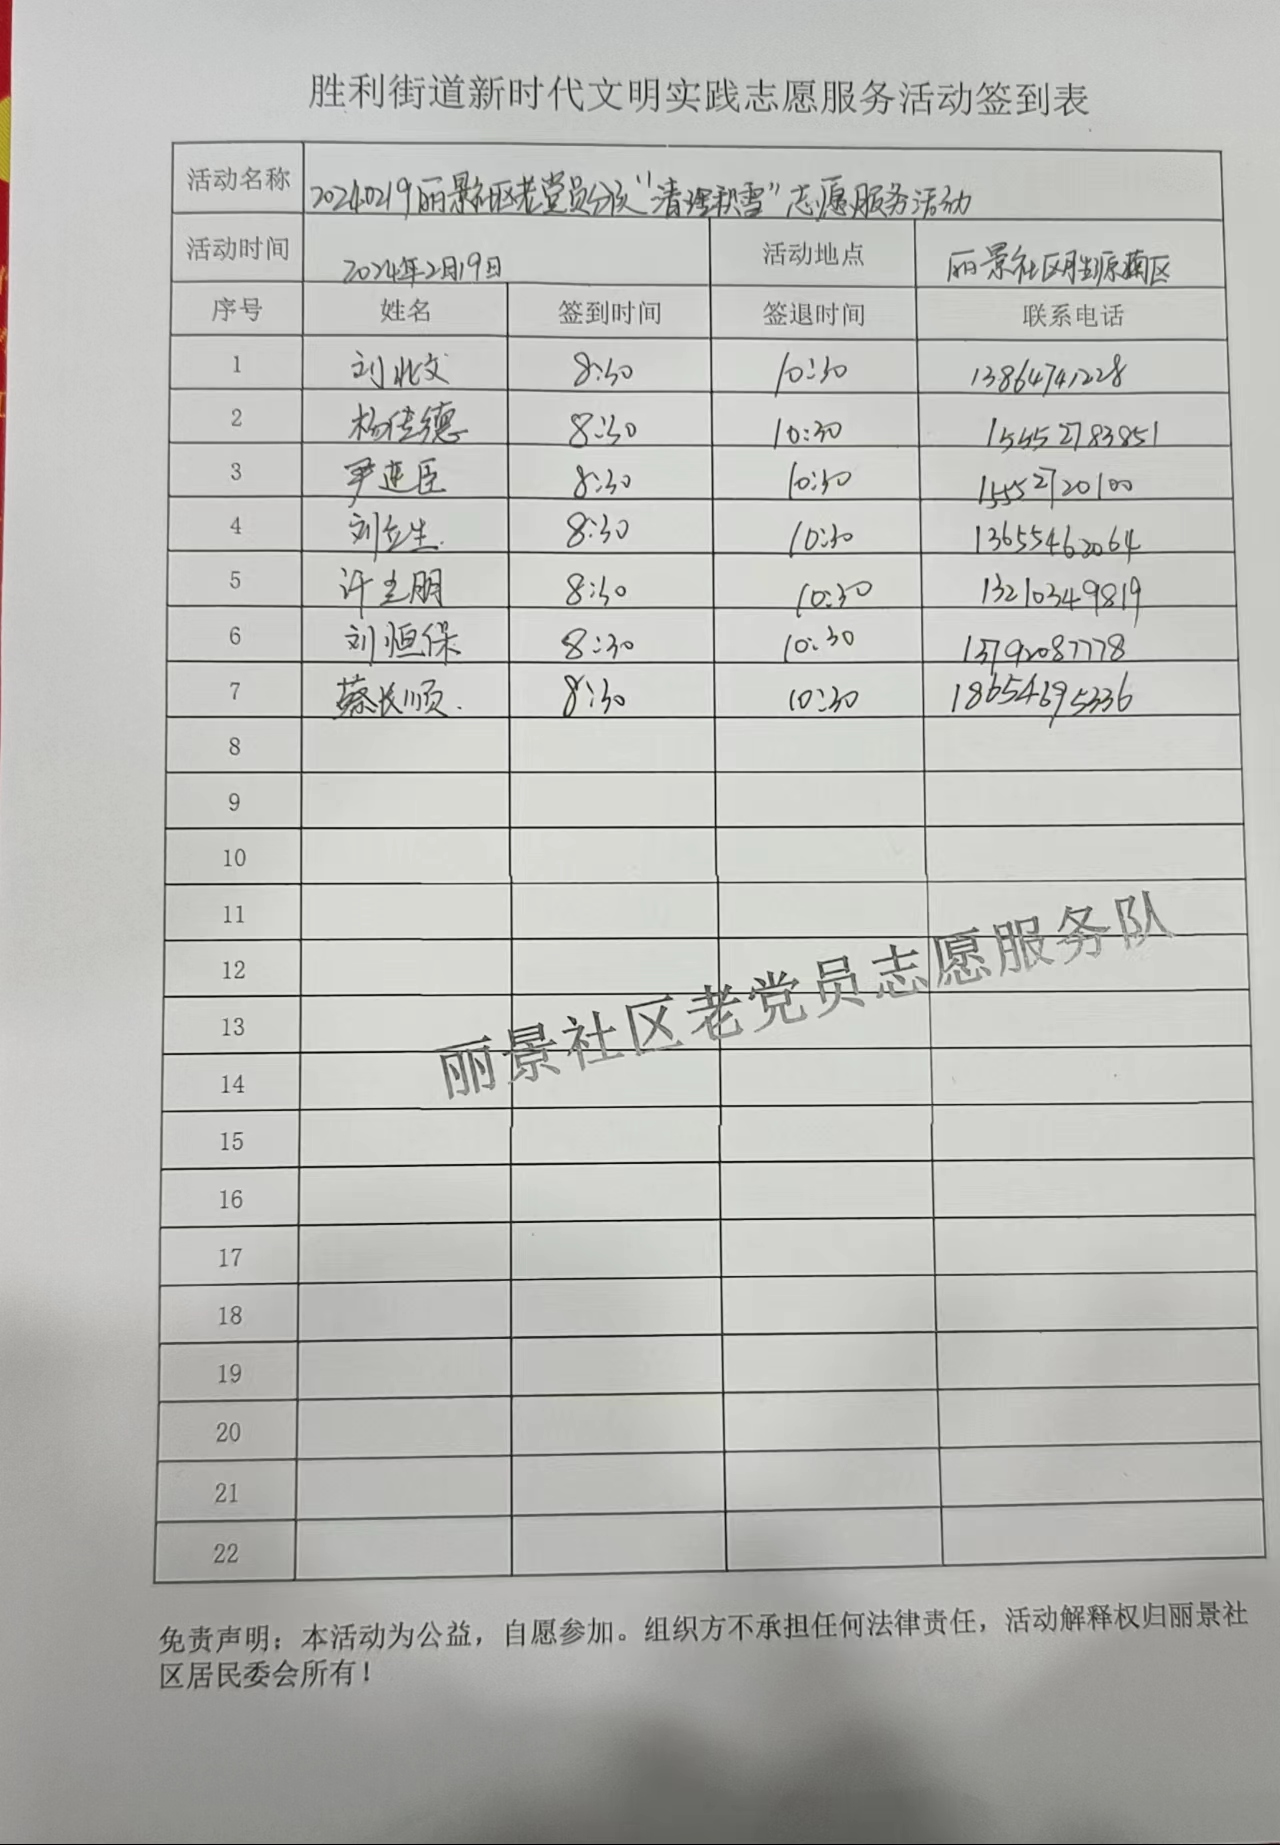 胜利街道新时代文明实践志愿服务活动签到表
活动名称 20240219丽景社区老党员分队“清理积雪”志愿服务活动
活动时间 2024年2月19日 活动地点 丽景社区胜利原南区
序号 姓名 签到时间 签退时间 联系电话
1 刘兆文 8:30 10:30 13864741228
2 杨传德 8:30 10:30 15552783851
3 尹连臣 8:30 10:30 15552720100
4 刘立生 8:30 10:30 13655462064
5 许玉朋 8:30 10:30 13210349819
6 刘恒保 8:30 10:30 13792087778
7 蔡长顺 8:30 10:30 18654695336
8
9
10
11
12
13
14
15
16
17
18
19
20
21
22
丽景社区老党员志愿服务队
免责声明：本活动为公益，自愿参加。组织方不承担任何法律责任，活动解释权归丽景社
区居民委会所有！